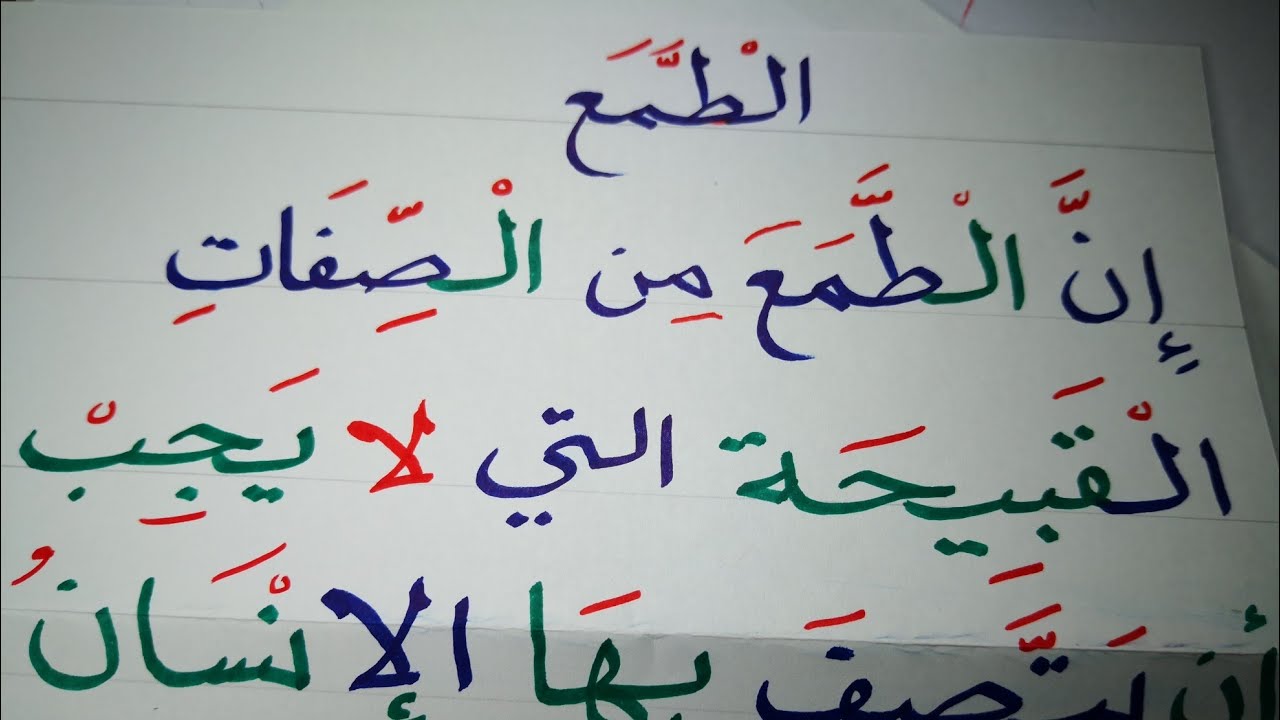 الْطَّمَع
إنَّ الْطَّمَعَ مِن الْصِّفَاتِ
الْقَبِيحَة التي لا يَجِبْ
أن يَتَّصِفَ بهَا الإنْسَانُ